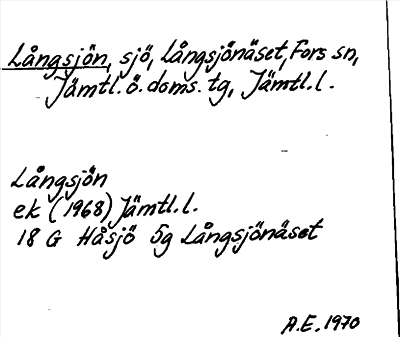 Långsjön, sjö, Långsjönäset, Fors sn,
Jämtl.ö.doms.tg, Jämtl.l.
Långsjön
ek (1968) Jämtl.l.
18 G Håsjö 5g Långsjönäset
A.E. 1970